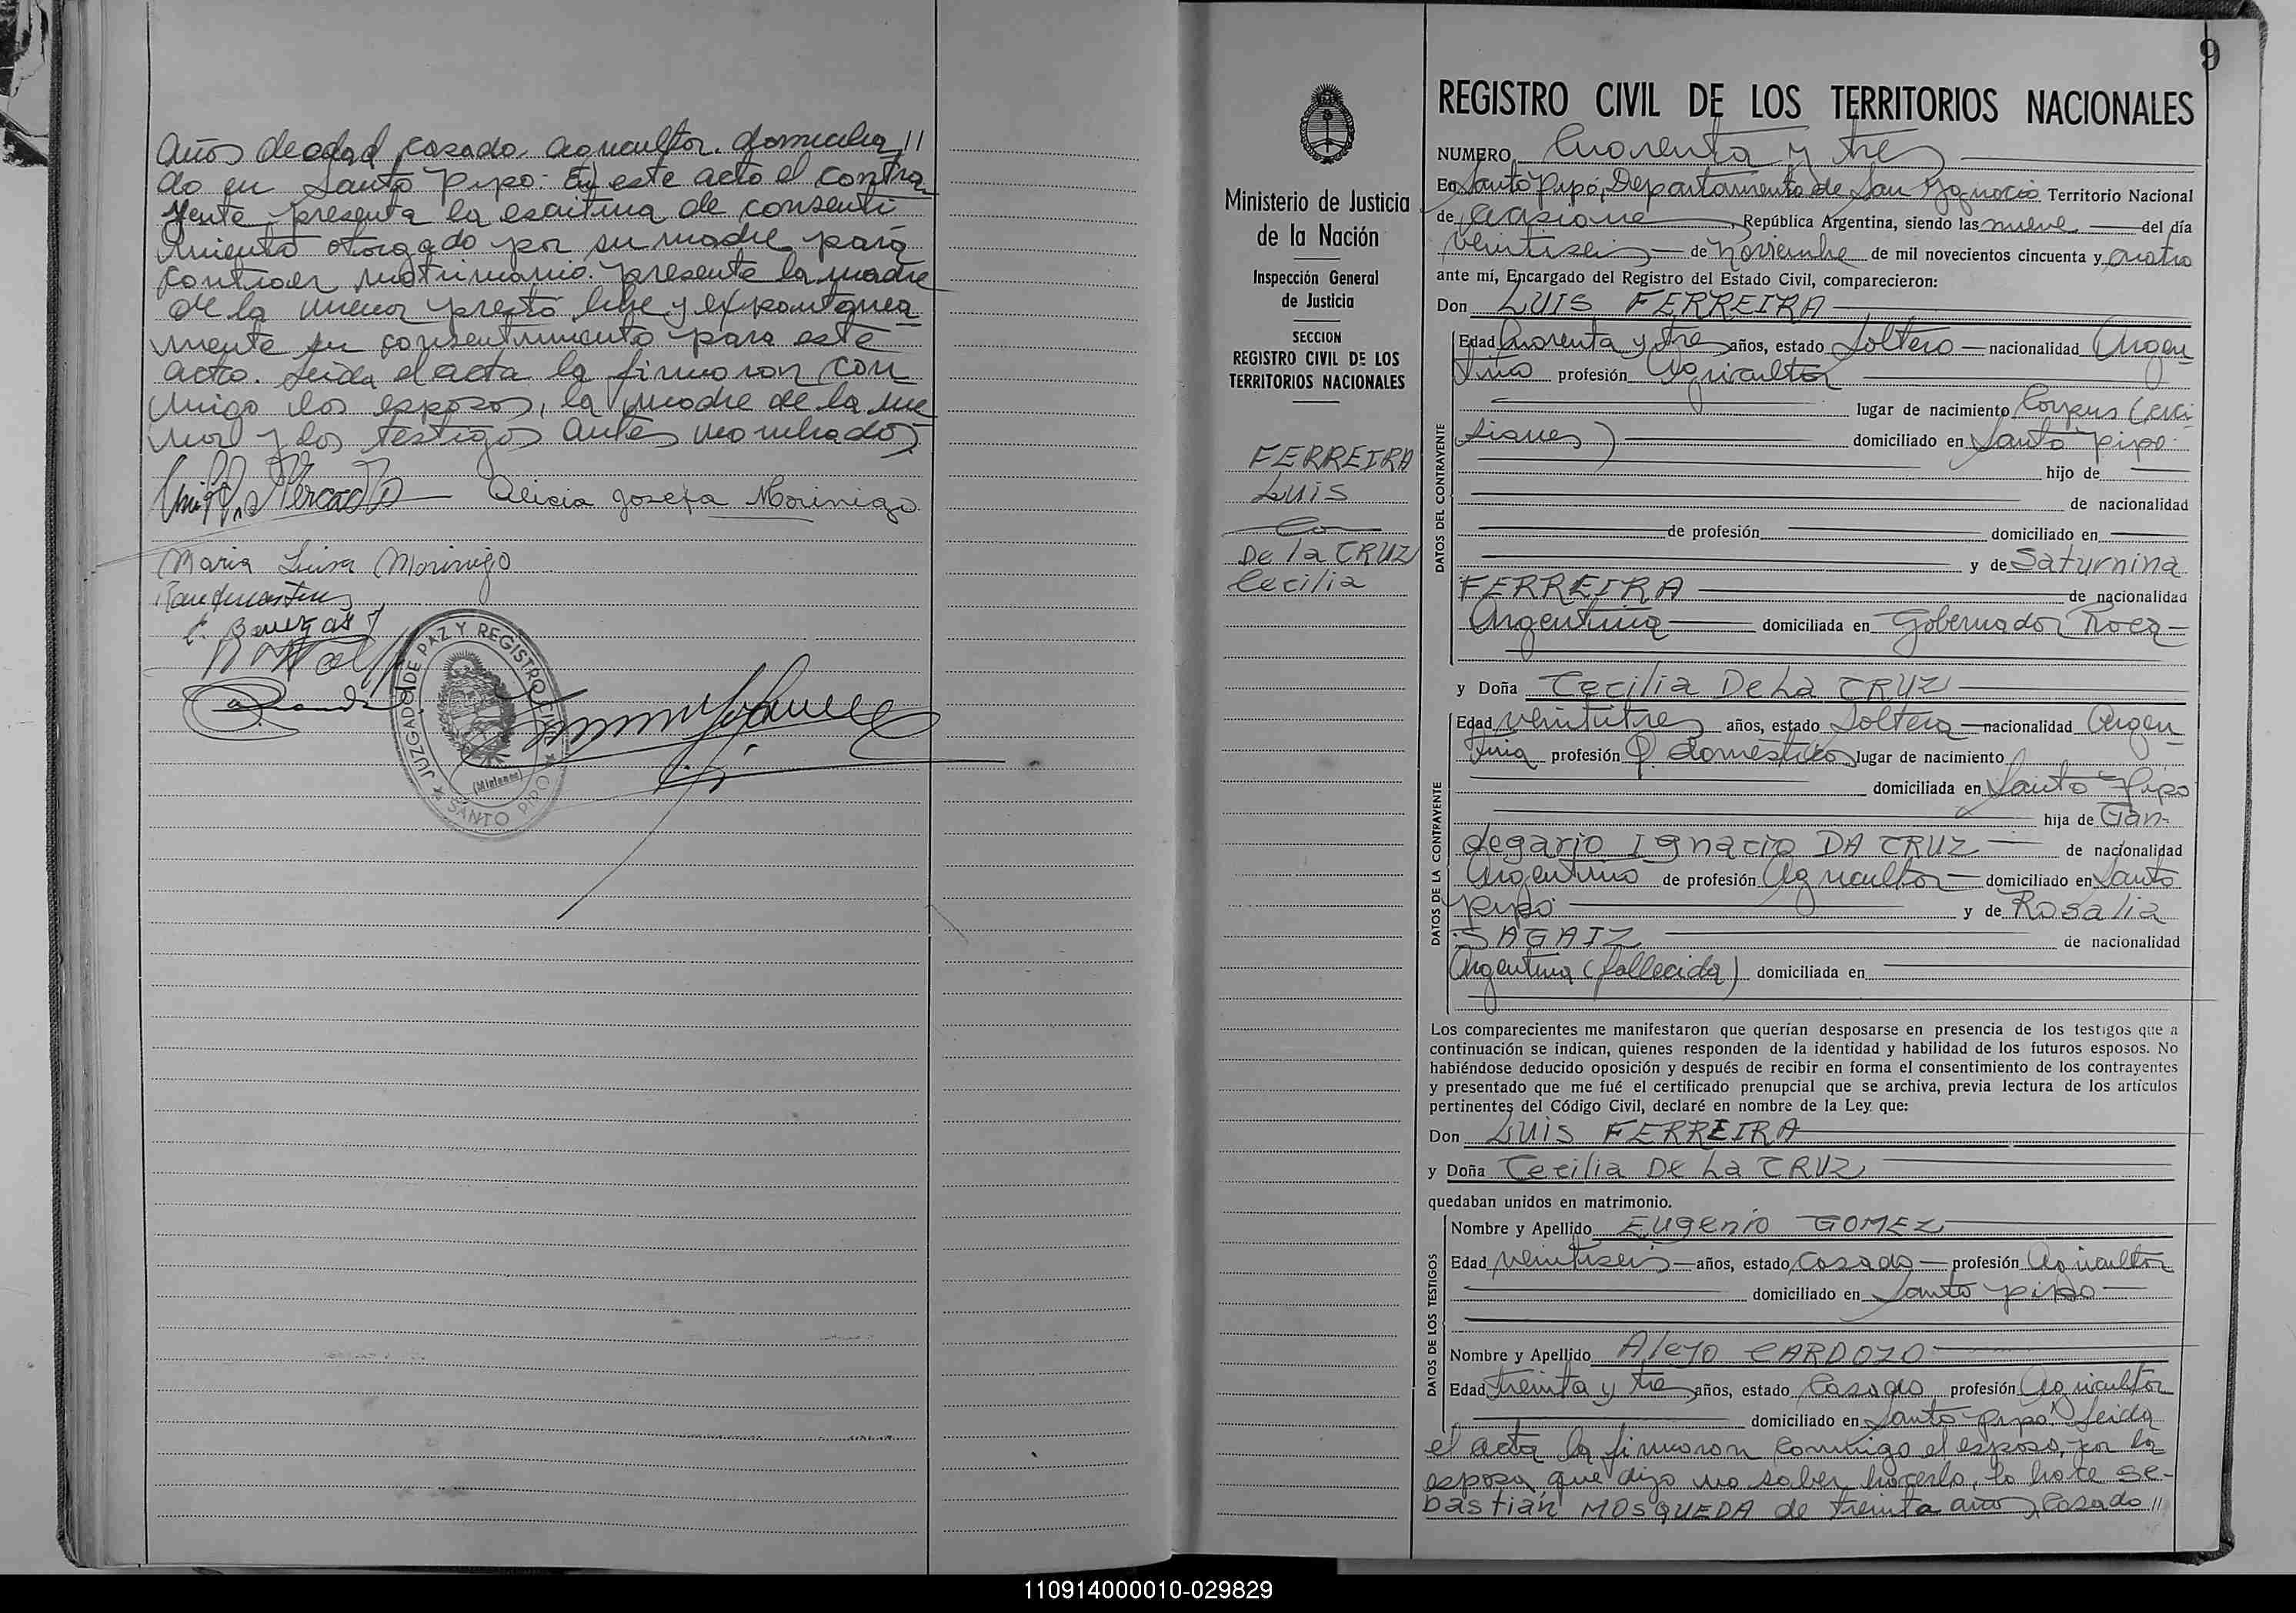 años de edad, casado, agricultor, domicilia//
do en Santo Pipó: En este acto el contra
yente presenta la escritura de consenti
miento otorgado por su madre para
contraer matrimonio. presente la madre
de la menor prestó libre y expontanea
mente su consentimiento para este
acto. Leida el acta la firmaron con
migo los esposos, la madre de la me
nor y los testigos antes nombrados.
Alicia Josefa Morinigo
Maria Luisa Morinigo
JUZGADO DE PAZ Y REGISTRO CIVIL
(Misiones)
SANTO PIPÓ
9
Ministerio de Justicia
de la Nación
Inspección General
de Justicia
SECCION
REGISTRO CIVIL DE LOS
TERRITORIOS NACIONALES
FERREIRA
Luis
con
De la CRUZ
Cecilia
REGISTRO CIVIL DE LOS TERRITORIOS NACIONALES
NUMERO Cuarenta y tres
En Santo Pipó, Departamento de San Ygnacio Territorio Nacional
de Misiones, República Argentina, siendo las nueve del día
veintiseis de Noviembre de mil novecientos cincuenta y cuatro
ante mí, Encargado del Registro del Estado Civil, comparecieron:
Don LUIS FERREIRA
DATOS DEL CONTRAYENTE
Edad Cuarenta y tres años, estado Soltero nacionalidad Argen
tino profesión Agricultor
lugar de nacimiento Corpus (Mi
siones) domiciliado en Santo Pipó
hijo de
de nacionalidad
de profesión domiciliado en
y de Saturnina
FERREIRA de nacionalidad
Argentina domiciliada en Gobernador Roca
y Doña Cecilia De La CRUZ
DATOS DE LA CONTRAYENTE
Edad veintitres años, estado Soltera nacionalidad Argen
tina profesión Q. domésticos lugar de nacimiento
domiciliada en Santo Pipó
hija de Gan-
degario Ignacio DA CRUZ de nacionalidad
Argentino de profesión Agricultor domiciliado en Santo
Pipó y de Rosalia
SAGAIZ de nacionalidad
Argentina (fallecida) domiciliada en
Los comparecientes me manifestaron que querían desposarse en presencia de los testigos que a
continuación se indican, quienes responden de la identidad y habilidad de los futuros esposos. No
habiéndose deducido oposición y después de recibir en forma el consentimiento de los contrayentes
y presentado que me fué el certificado prenupcial que se archiva, previa lectura de los artículos
pertinentes del Código Civil, declaré en nombre de la Ley que:
Don LUIS FERREIRA
y Doña Cecilia De La CRUZ
quedaban unidos en matrimonio.
DATOS DE LOS TESTIGOS
Nombre y Apellido Eugenio GOMEZ
Edad veintiseis años, estado Casado profesión Agricultor
domiciliado en Santo Pipó
Nombre y Apellido Alejo CARDOZO
Edad treinta y tres años, estado Casado profesión Agricultor
domiciliado en Santo Pipó. Leida
el acta la firmaron conmigo el esposo, por la
esposa, que dijo no saber hacerlo, lo hace Se-
bastián MOSQUEDA de treinta años, casado //
110914000010-029829